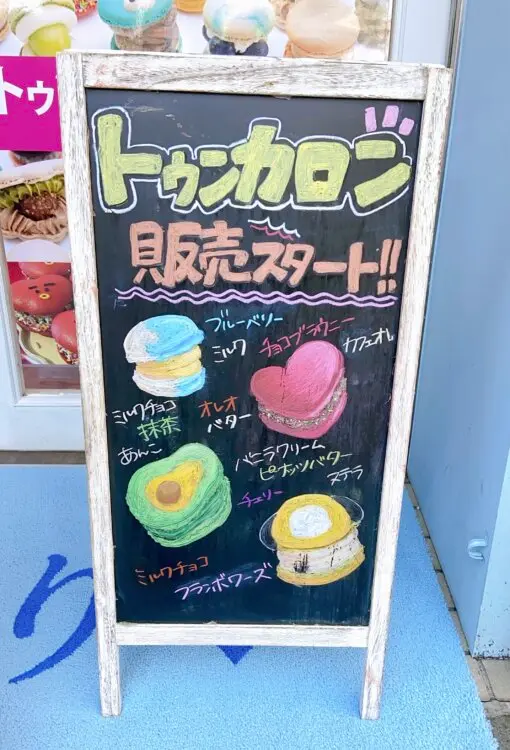 トゥ
トゥンカロン
販売スタート!!
ブルーベリー
ミルク
チョコブラウニー
カフェオレ
ミルクチョコ
抹茶
あんこ
オレオ
バター
バニラクリーム
ピーナッツバター
チェリー
ミルクチョコ
フランボワーズ
り